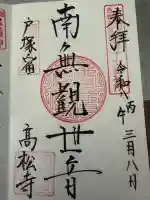 奉拝
令和八丙午
三月八日
南無觀世音
戸塚宿
高松寺